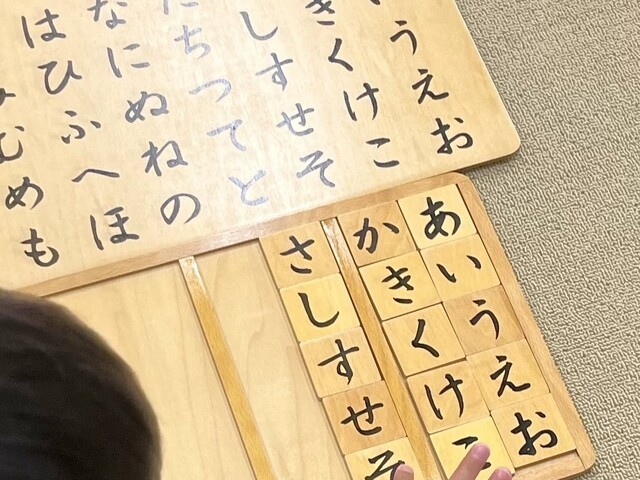 うえお
きくけこ
しすせそ
ちつてと
なにぬねの
はひふへほ
むめも
あいうえお
かきくけこ
さしすせそ